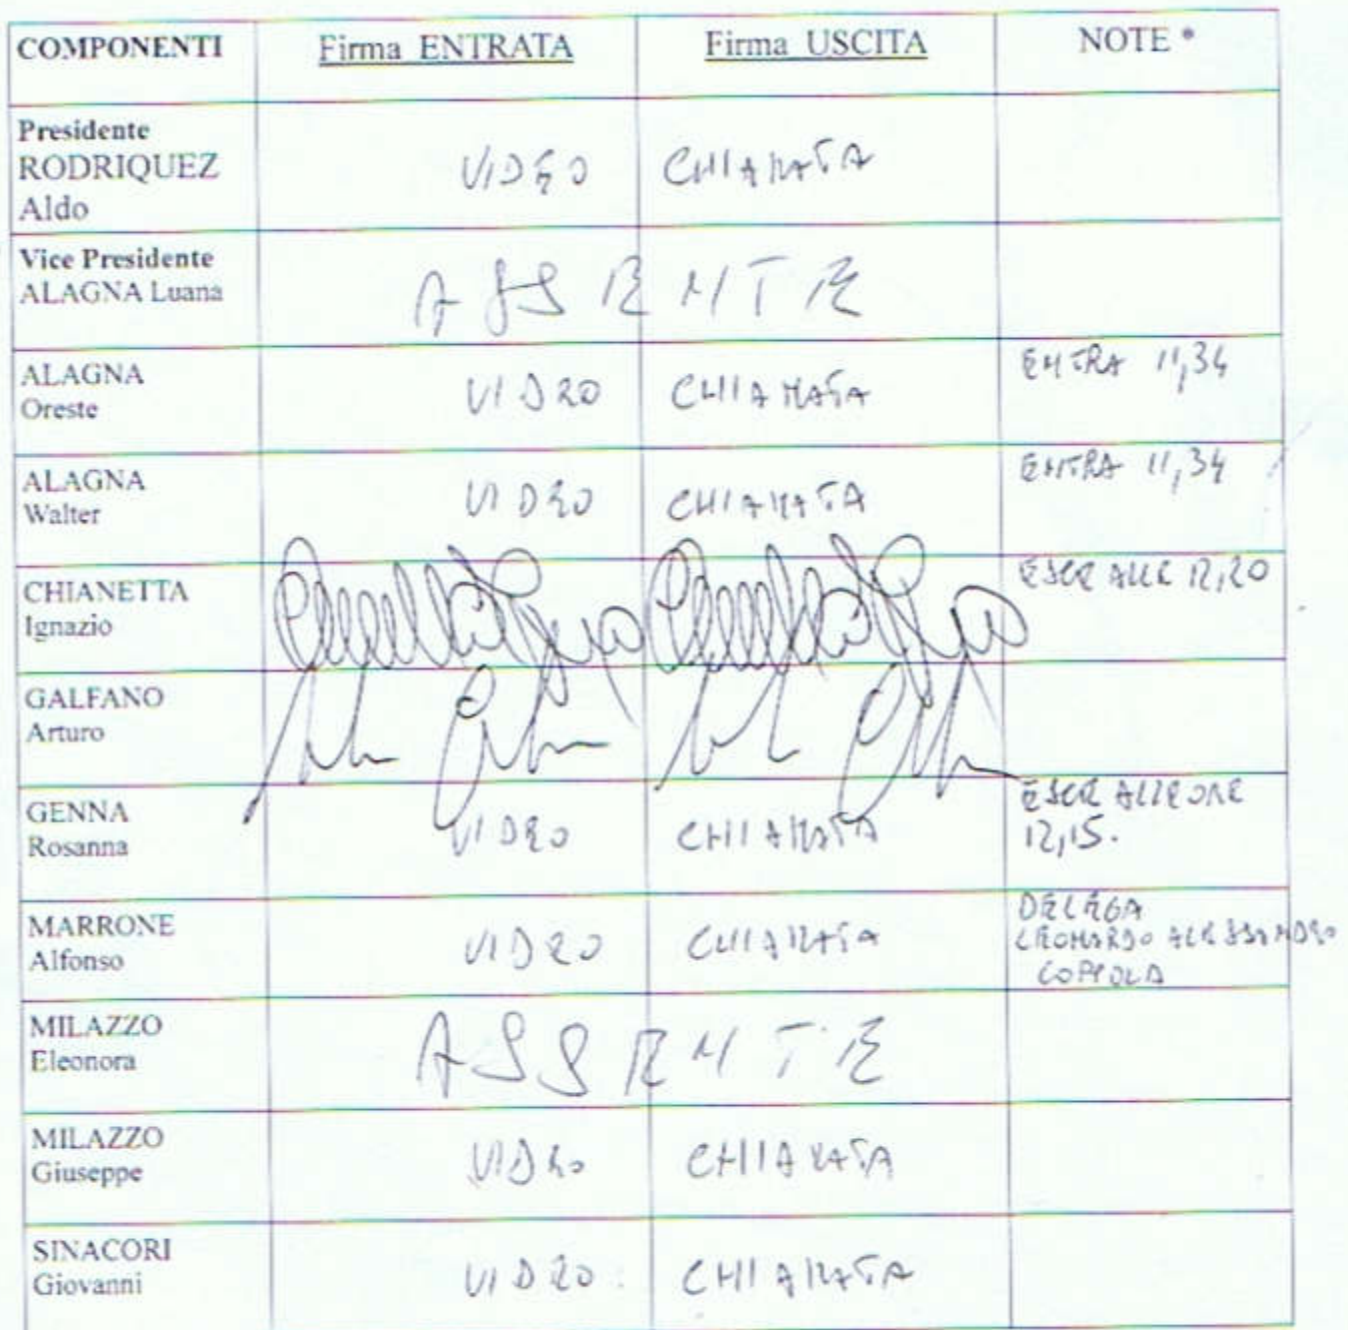 COMPONENTI Firma ENTRATA Firma USCITA NOTE *
Presidente
RODRIQUEZ
Aldo
VIDEO CHIAMATA
Vice Presidente
ALAGNA Luana
ASSENTE
ALAGNA
Oreste
VIDEO CHIAMATA
ENTRA 11,34
ALAGNA
Walter
VIDEO CHIAMATA
ENTRA 11,34
CHIANETTA
Ignazio
ESCE ALLE 12,20
GALFANO
Arturo
GENNA
Rosanna
VIDEO CHIAMATA
ESCE ALLE ORE
12,15.
MARRONE
Alfonso
VIDEO CHIAMATA
DELEGA
LEONARDO ALESSANDRO
COPPOLA
MILAZZO
Eleonora
ASSENTE
MILAZZO
Giuseppe
VIDEO CHIAMATA
SINACORI
Giovanni
VIDEO CHIAMATA